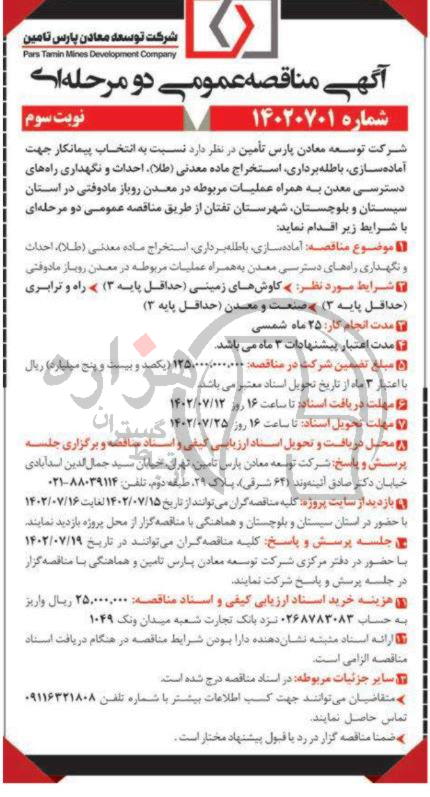 شرکت توسعه معادن پارس تامین
Pars Tamin Mines Development Company
آگهی مناقصه عمومی دو مرحله‌ای
شماره ۱۴۰۲۰۷۰۱
نوبت سوم
شرکت توسعه معادن پارس تأمین در نظر دارد نسبت به انتخاب پیمانکار جهت
آماده‌سازی، باطله‌برداری، استخراج ماده معدنی (طلا)، احداث و نگهداری راه‌های
دسترسی معدن به همراه عملیات مربوطه در معدن روباز مادوفتی در استان
سیستان و بلوچستان، شهرستان تفتان از طریق مناقصه عمومی دو مرحله‌ای
با شرایط زیر اقدام نماید:
۱ موضوع مناقصه: آماده‌سازی، باطله‌برداری، استخراج ماده معدنی (طلا)، احداث
و نگهداری راه‌های دسترسی معدن به‌همراه عملیات مربوطه در معدن روباز مادوفتی
۲ شرایط مورد نظر: کاوش‌های زمینی (حداقل پایه ۳) راه و ترابری
(حداقل پایه ۳) صنعت و معدن (حداقل پایه ۳)
۳ مدت انجام کار: ۲۵ ماه شمسی
۴ مدت اعتبار پیشنهادات ۳ ماه می باشد.
۵ مبلغ تضمین شرکت در مناقصه: ۱۲۵،۰۰۰،۰۰۰،۰۰۰ (یکصد و بیست و پنج میلیارد) ریال
با اعتبار ۳ ماه از تاریخ تحویل اسناد معتبر می باشد.
۶ مهلت دریافت اسناد: تا ساعت ۱۶ روز ۱۴۰۲/۰۷/۱۲
۷ مهلت تحویل اسناد: تا ساعت ۱۶ روز ۱۴۰۲/۰۷/۲۵
۸ محل دریافت و تحویل اسناد ارزیابی کیفی و اسناد مناقصه و برگزاری جلسه
پرسش و پاسخ: شرکت توسعه معادن پارس تامین، تهران، خیابان سید جمال‌الدین اسدآبادی
خیابان دکتر صادق آئینه‌وند (۶۴ شرقی)، پلاک ۲۹، طبقه دوم، تلفن: ۸۸۰۳۹۱۱۴-۰۲۱
۹ بازدید از سایت پروژه: کلیه مناقصه‌گران می‌توانند از تاریخ ۱۴۰۲/۰۷/۱۵ لغایت ۱۴۰۲/۰۷/۱۶
با حضور در استان سیستان و بلوچستان و هماهنگی با مناقصه‌گزار از محل پروژه بازدید نمایند.
۱۰ جلسه پرسش و پاسخ: کلیه مناقصه‌گران می‌توانند در تاریخ ۱۴۰۲/۰۷/۱۹
با حضور در دفتر مرکزی شرکت توسعه معادن پارس تامین و هماهنگی با مناقصه‌گزار
در جلسه پرسش و پاسخ شرکت نمایند.
۱۱ هزینه خرید اسناد ارزیابی کیفی و اسناد مناقصه: ۲۵،۰۰۰،۰۰۰ ریال واریز
به حساب ۰۲۶۸۷۸۳۰۸۳ نزد بانک تجارت شعبه میدان ونک ۱۰۴۹
۱۲ ارائه اسناد مثبته نشان‌دهنده دارا بودن شرایط مناقصه در هنگام دریافت اسناد
مناقصه الزامی است.
۱۳ سایر جزئیات مربوطه: در اسناد مناقصه درج شده است.
متقاضیان می‌توانند جهت کسب اطلاعات بیشتر با شماره تلفن ۰۹۱۱۶۳۲۱۸۰۸
تماس حاصل نمایند.
ضمنا مناقصه گزار در رد یا قبول پیشنهاد مختار است.
هزاره
گستران